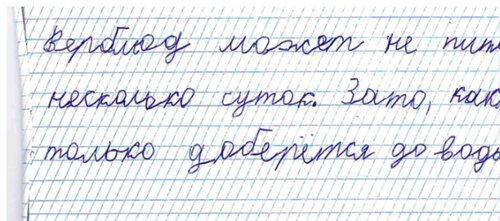 Верблюд может не пить
несколько суток. Зато, как
только доберётся до воды